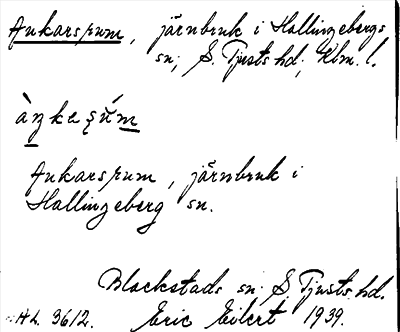 Ankarsrum, järnbruk i Hallingebergs
sn, S. Tjusts hd, Klm. l.
àŋkaʂúm
Ankarsrum, järnbruk i
Hallingeberg sn.
Blackstads sn S. Tjusts hd.
HL. 3612. Eric Eilert 1939.